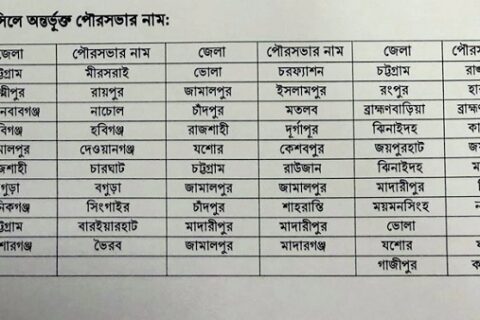 অন্তর্ভূক্ত পৌরসভার নাম:
জেলা পৌরসভার নাম জেলা পৌরসভার নাম জেলা
মীরসরাই ভোলা চরফ্যাশন চট্টগ্রাম
রায়পুর জামালপুর ইসলামপুর রংপুর
নাচোল চাঁদপুর মতলব ব্রাহ্মণবাড়িয়া
হবিগঞ্জ রাজশাহী দূর্গাপুর ঝিনাইদহ
দেওয়ানগঞ্জ যশোর কেশবপুর জয়পুরহাট
চারঘাট চট্টগ্রাম রাউজান ঝিনাইদহ
বগুড়া জামালপুর জামালপুর মাদারীপুর
সিংগাইর চাঁদপুর শাহরাস্তি ময়মনসিংহ
বারইয়ারহাট মাদারীপুর মাদারীপুর ভোলা
ভৈরব জামালপুর মাদারগঞ্জ যশোর
গাজীপুর